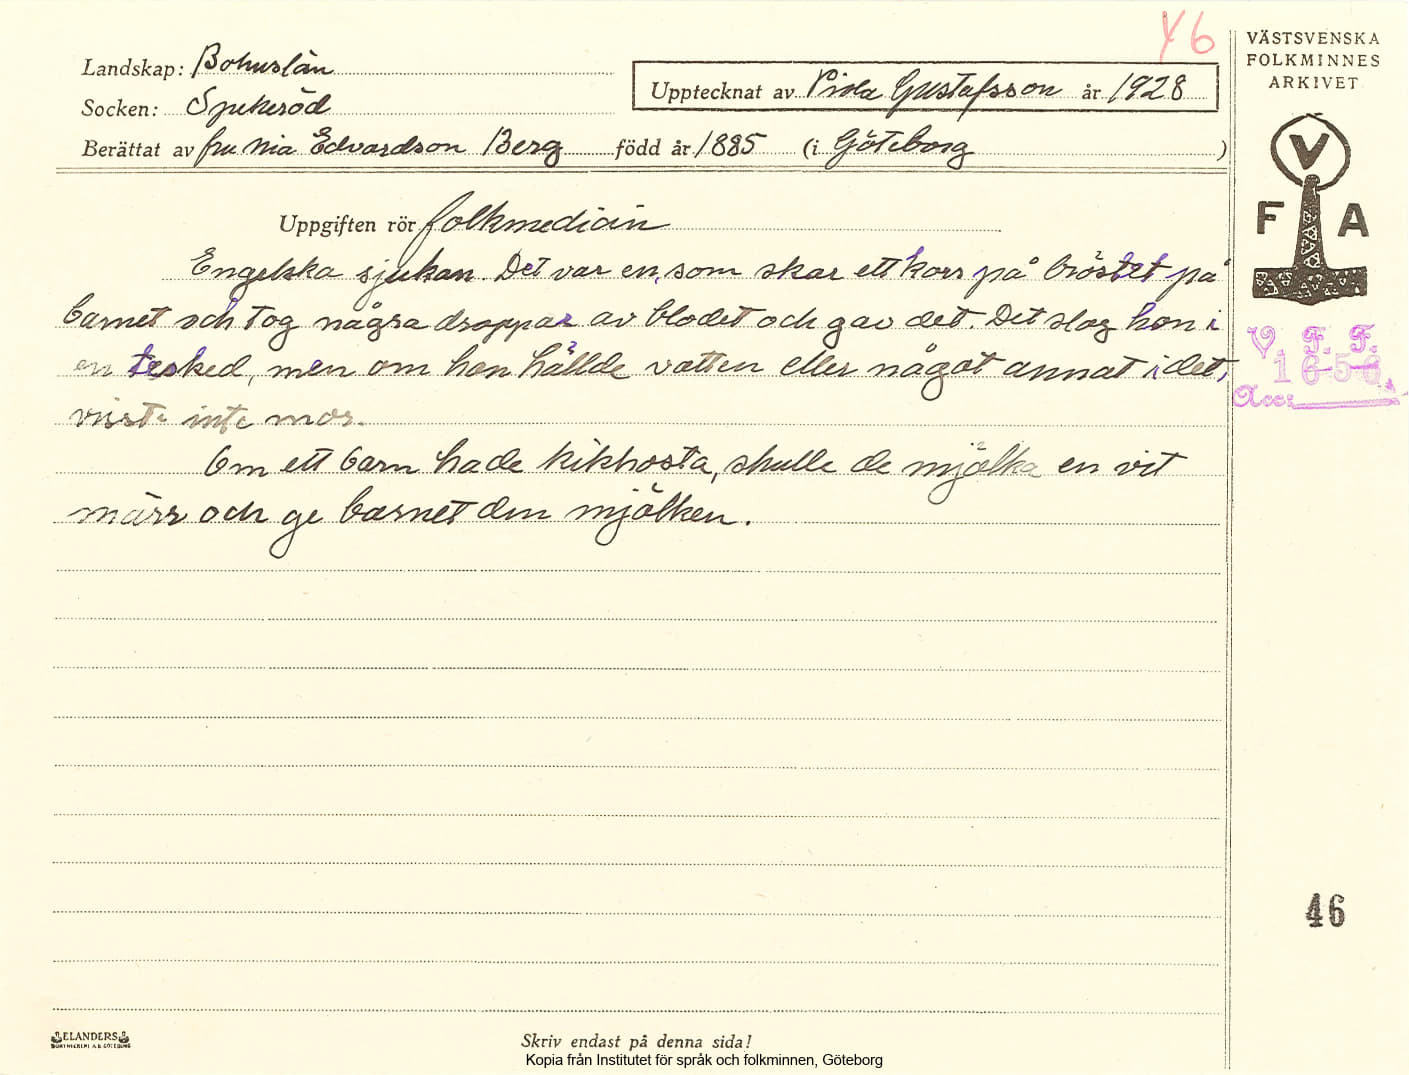 46
VÄSTSVENSKA
FOLKMINNES
ARKIVET
Landskap: Bohuslän
Upptecknat av Viola Gustafsson år 1928
Socken: Spekeröd
Berättat av fru Mia Edvardson Berg född år 1885 (i Göteborg )
V
F A
Uppgiften rör folkmedicin
Engelska sjukan. Det var en, som skar ett kors på bröstet på
barnet och tog några droppar av blodet och gav det. Det slog hon i
en tesked, men om hon hällde vatten eller något annat i det,
visste inte mor.
V. F. F.
1656
Acc:
Om ett barn hade kikhosta, skulle de mjölka en vit
märr och ge barnet den mjölken.
46
ELANDERS
BOKTRYCKERI A.B. GÖTEBORG
Skriv endast på denna sida!
Kopia från Institutet för språk och folkminnen, Göteborg